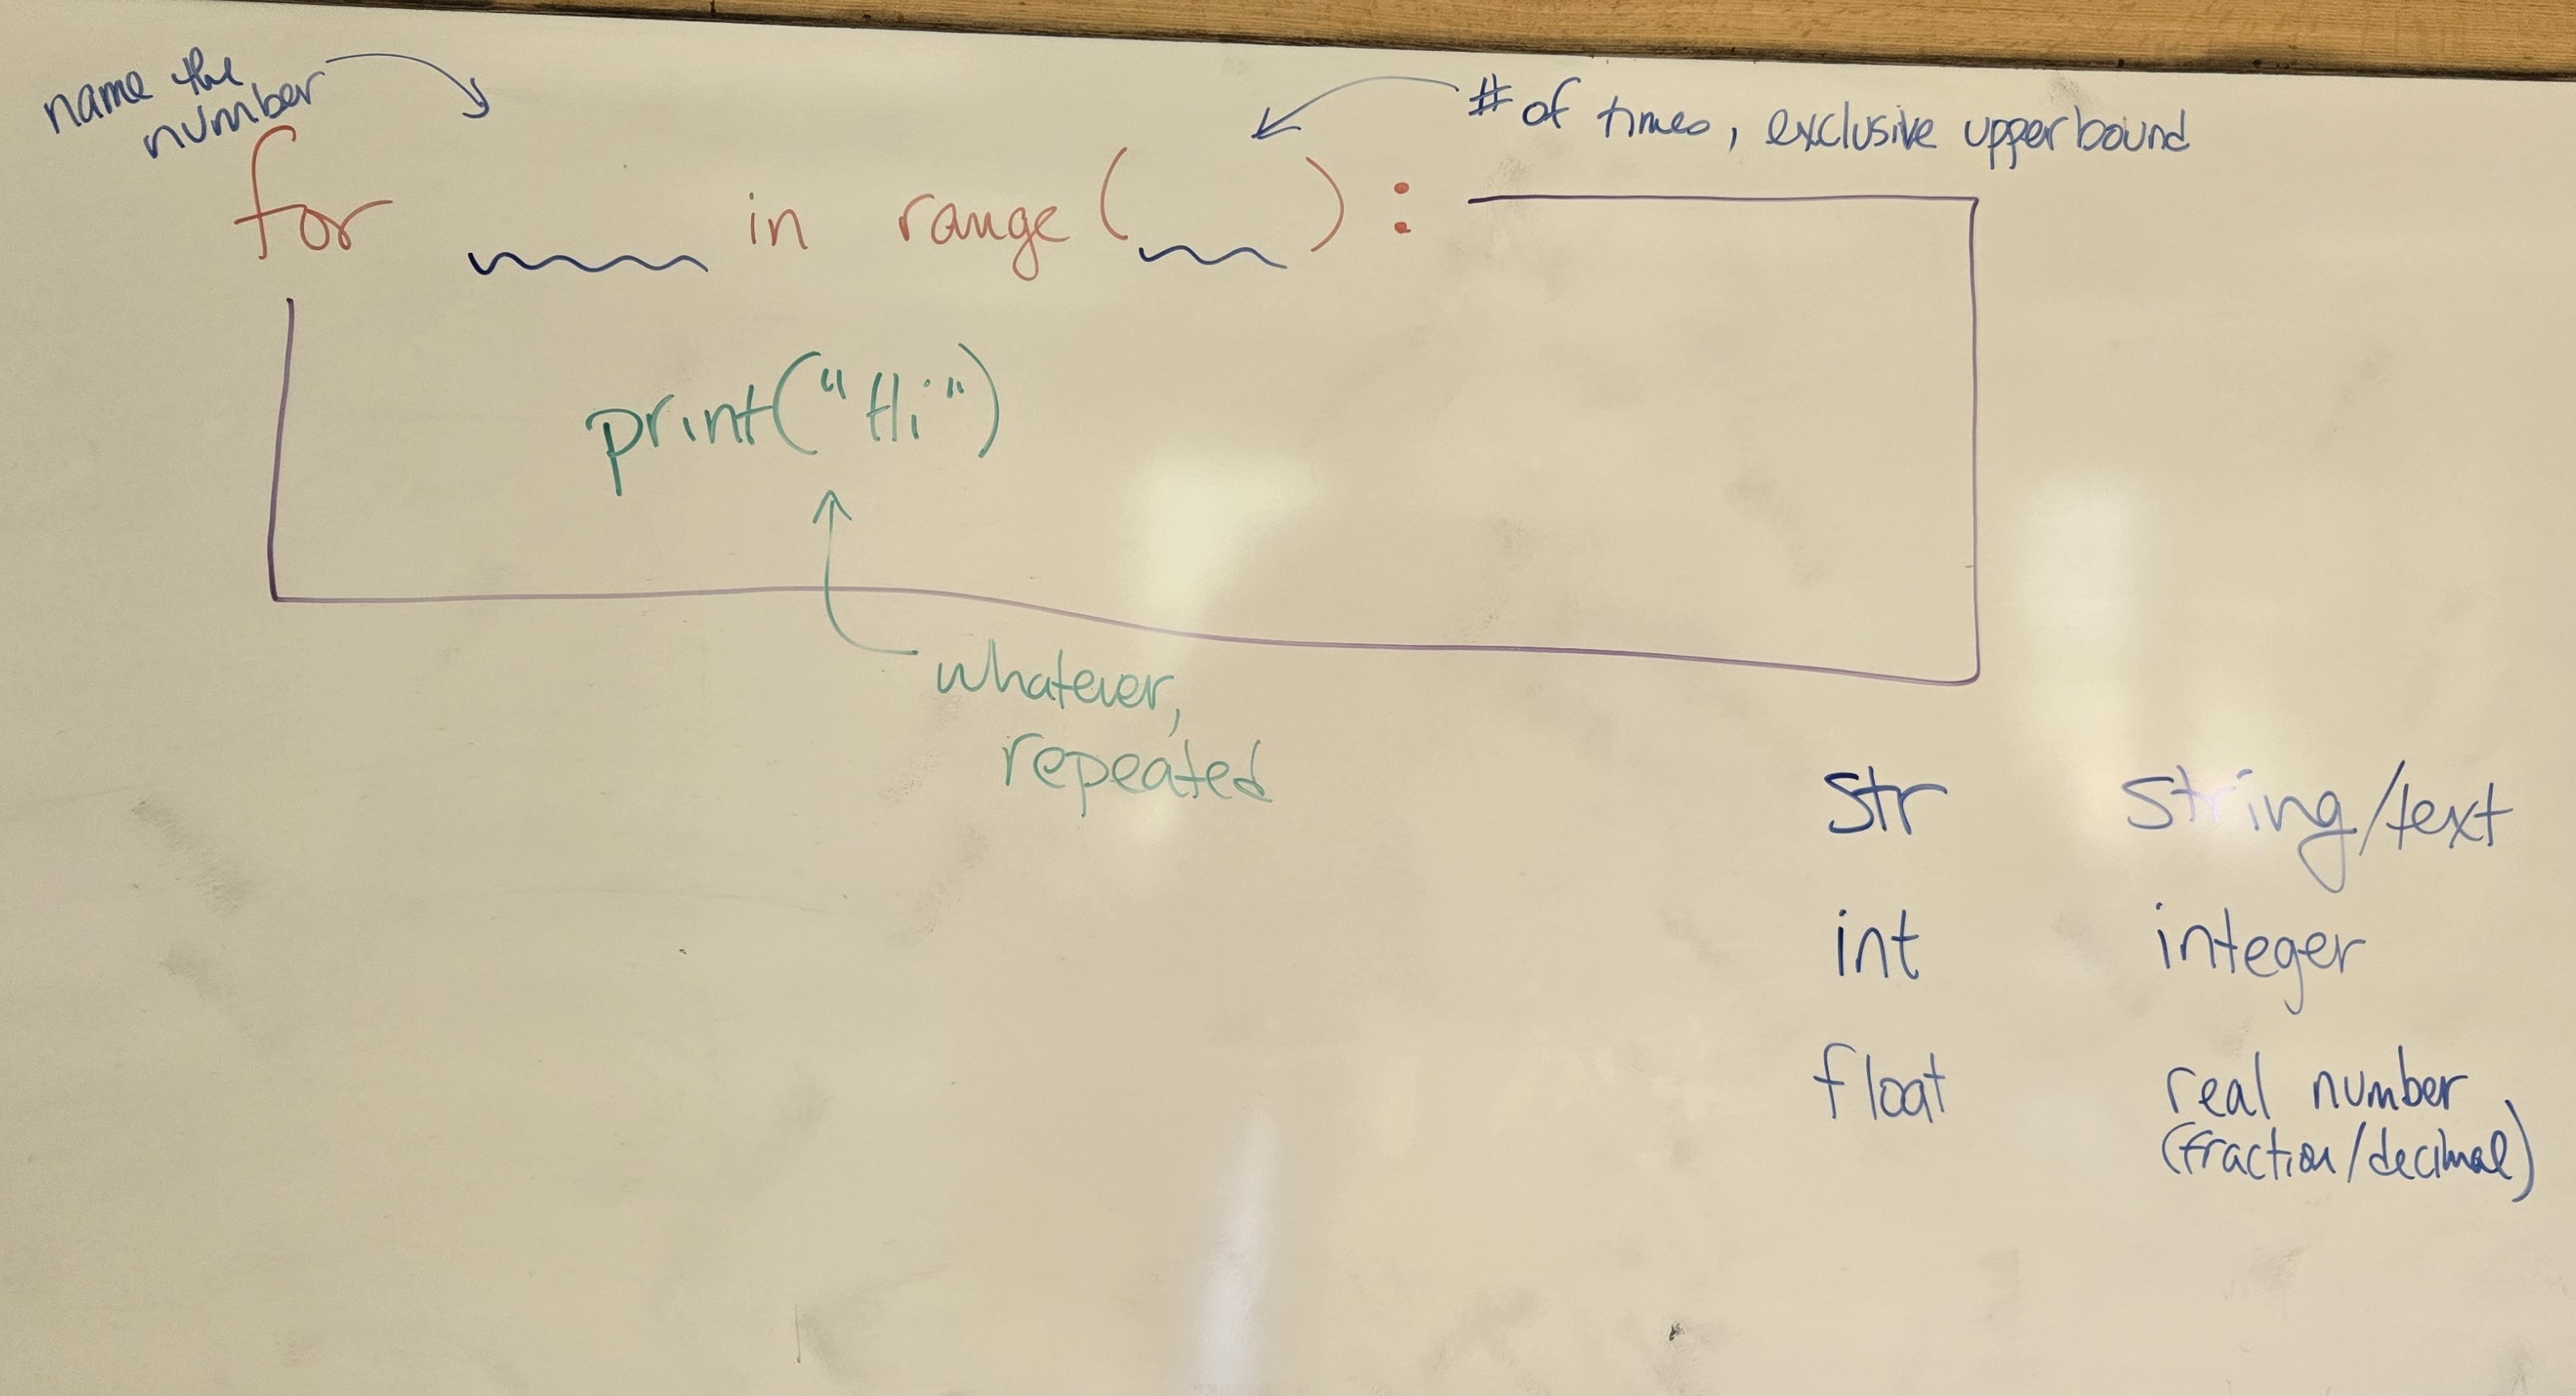 name the
number
# of times, exclusive upperbound
for in range ( ) :
print("Hi")
whatever,
repeated
str string/text
int integer
float real number
(fraction/decimal)